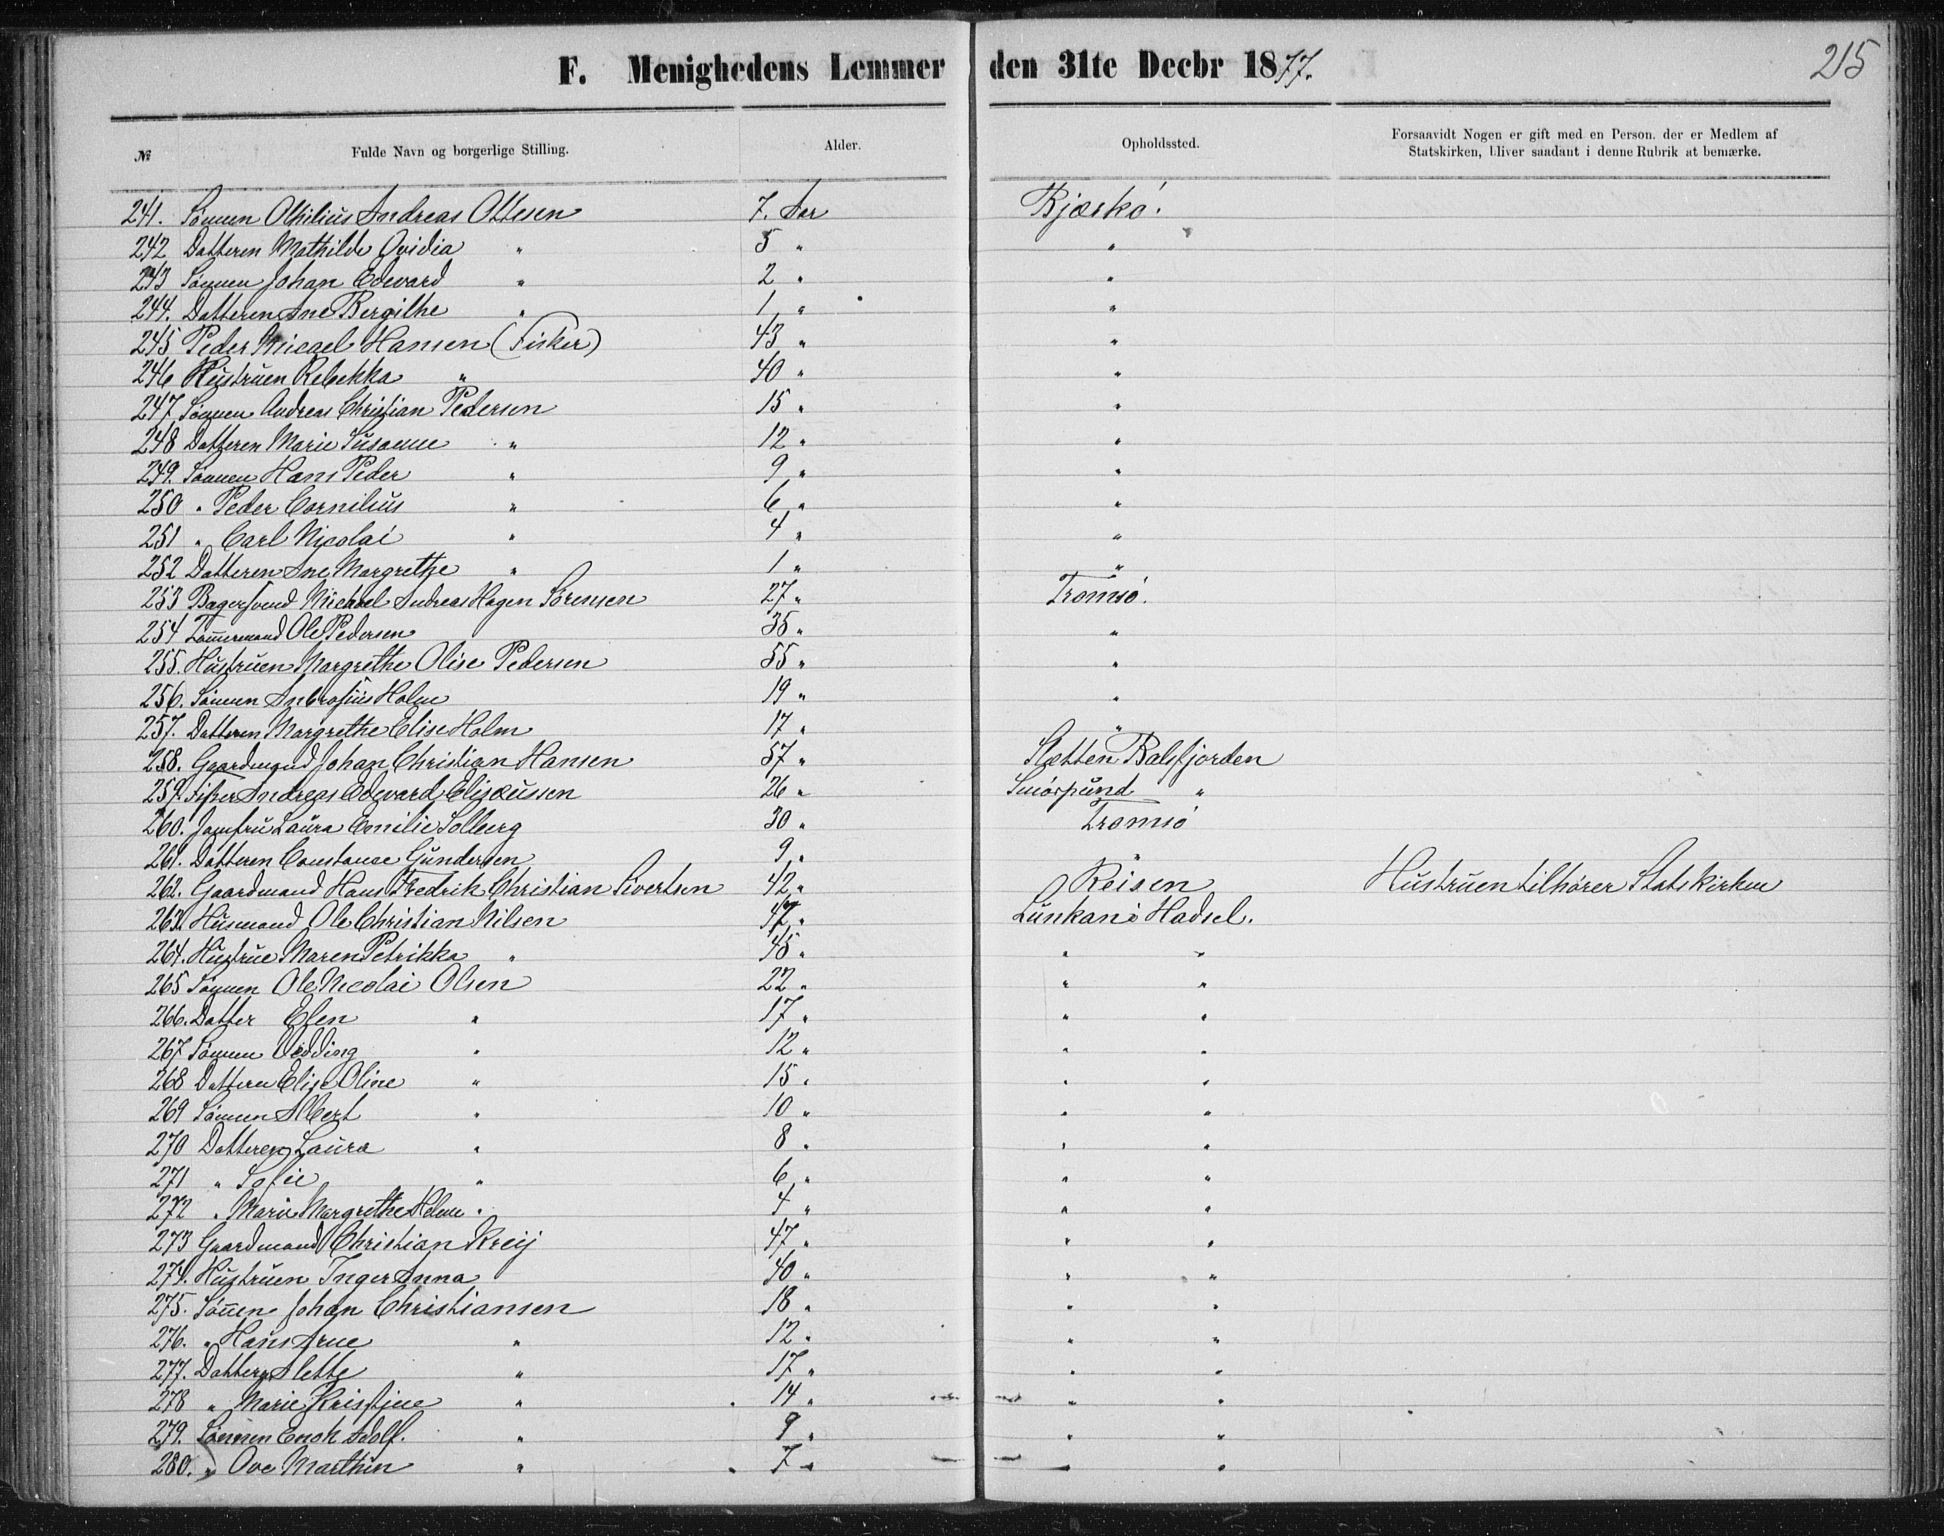 F. Menighedens Lemmer den 31te Decbr 1877. 215
№ Fulde Navn og borgerlige Stilling. Alder. Opholdssted. Forsaavidt Nogen er gift med en Person, der er Medlem af
Statskirken, bliver saadant i denne Rubrik at bemærke.
241. Sønnen Othilius Andreas Ottesen 7. Aar Bjærkø.
242 Datteren Mathilde Ovidia " 5 " "
243 Sønnen Johan Edevard " 2 " "
244. Datteren Ane Bergithe " 1 " "
245 Peder Micael Hansen (Fisker) 43 " "
246 Hustruen Rebekka " 40 " "
247. Sønnen Andreas Christian Pedersen 15 " "
248 Datteren Marie Susanne " 12 " "
249. Sønnen Hans Peder " 9 " "
250 " Peder Cornilius " 6 " "
251 " Carl Nicolai " 4 " "
252 Datteren Ane Margrethe " 1 " "
253 Bagersvend Michael Andreas Hagen Sørensen 27 " Tromsø.
254 Tømermand Ole Pedersen 35 " "
255. Hustruen Margrethe Olise Pedersen 55 " "
256. Sønnen Ambrosius Holm 19 " "
257. Datteren Margrethe Elise Holm 17 " "
258. Gaardmand Johan Christian Hansen 57 " Sletten Balsfjorden
259. Fisker Andreas Edevard Elisæussen 26 " "
260. Jomfru Laura Emilie Solberg 30 " Tromsø
261. Datteren Constanse Gundersen 9 " "
262. Gaardmand Hans Fredrik Christian Sivertsen 42 " Reisen Hustruen tilhører Statskirken
263. Husmand Ole Christian Nilsen 47 " Lunkan i Hadsel.
264. Hustrue Maren Petrikka " 45 " " "
265 Sønnen Ole Nicolai Olsen 22 " " "
266. Datter Elen " 17 " " "
267 Sønnen Vedding " 12 " " "
268 Datteren Elise Oline " 15 " " "
269 Sønnen Albert " 10 " " "
270 Datteren Laura " 8 " " "
271 " Sofie " 6 " " "
272 " Marie Margrethe Helene " 4 " " "
273 Gaardmand Christian Kreij 47 " " "
274. Hustruen Inger Anna 40 " " "
275. Sønen Johan Christiansen 18 " " "
276. " Hans Arne " 12 " " "
277. Datter Alette " 17 " " "
278 " Marie Kristine " 14 " " "
279. Sønnen Enok Adolf. " 9 " " "
280. " Ove Marthin " 7 " " "